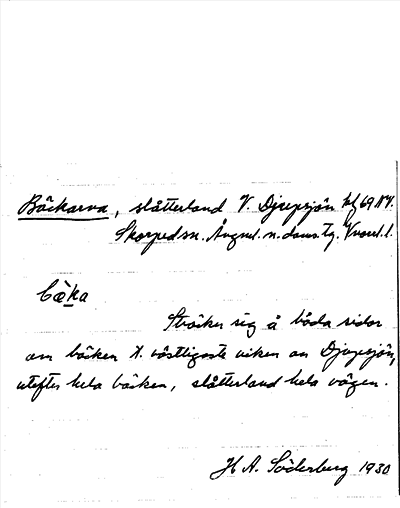 Bäckarna, slåtterland V. Djupsjön bl 69 NV.
Skorped sn. Ångml. n. doms. tg. Vnorrl. l.
bæka
Sträcker sig å båda sidor
om bäcken t. västligaste viken av Djupsjön,
utefter hela bäcken, slåtterland hela vägen.
H A. Söderberg 1930